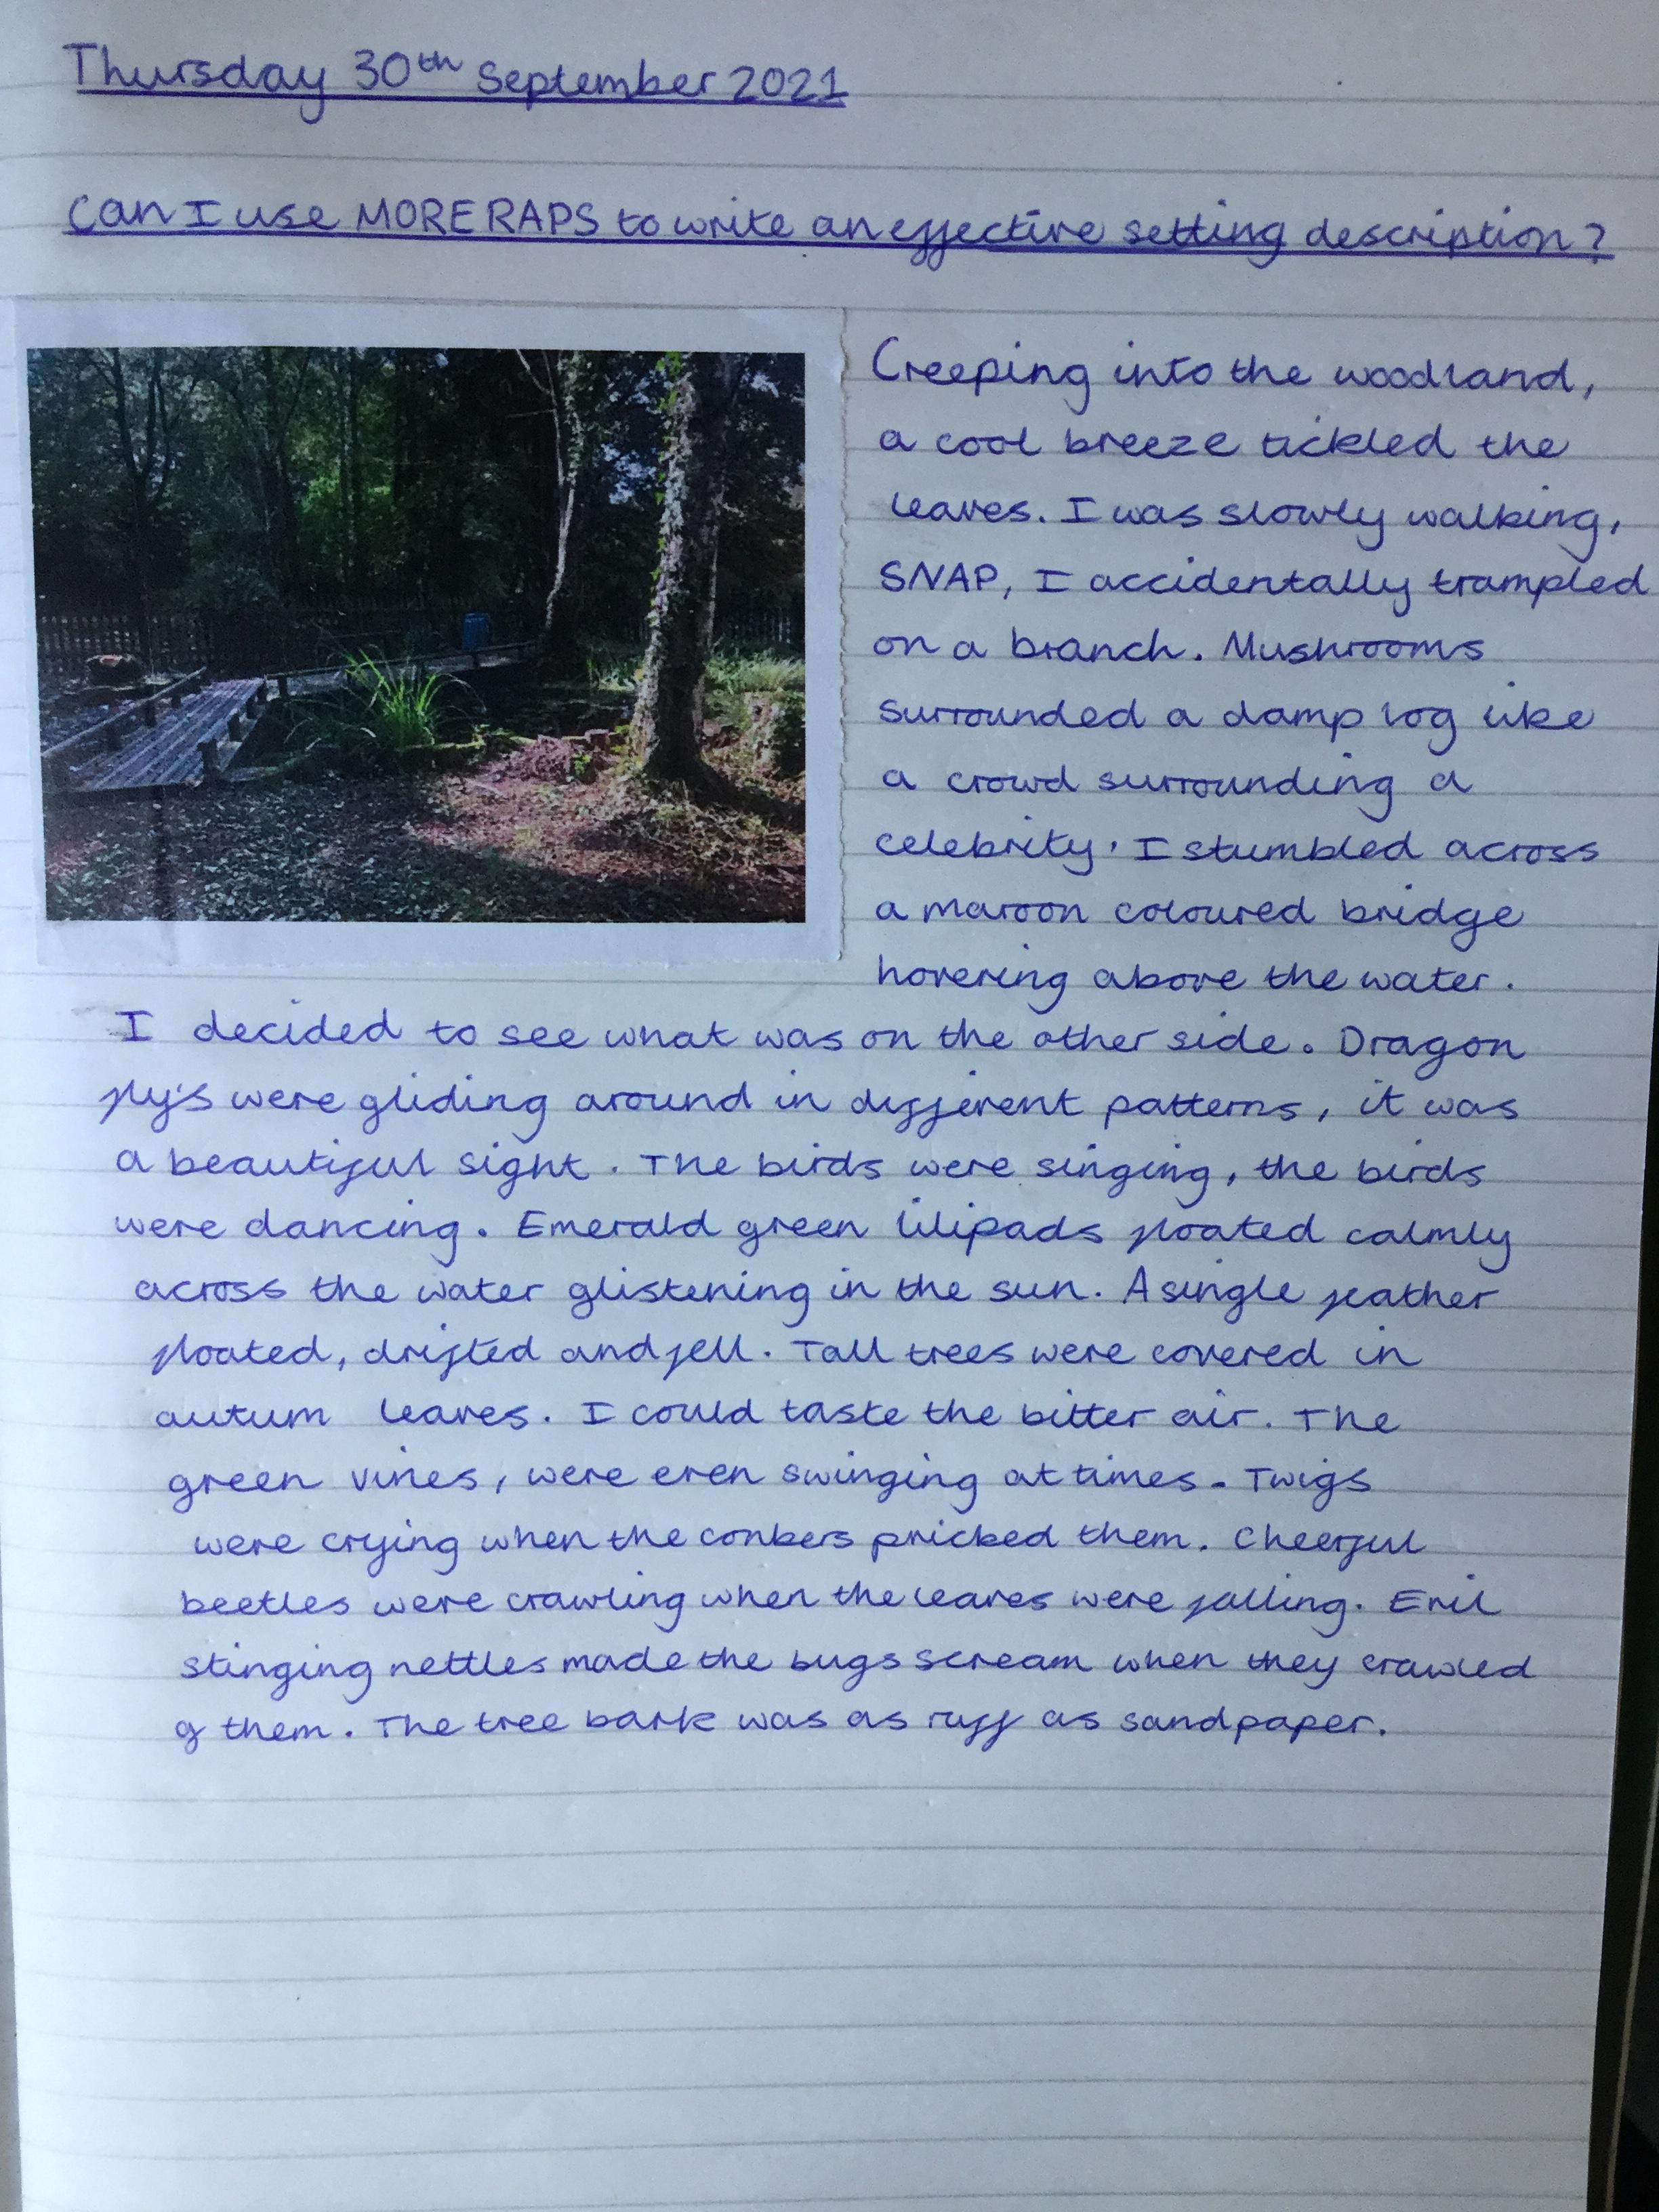 Thursday 30th September 2021
Can I use MORERAPS to write an effective setting description?
Creeping into the woodland,
a cool breeze tickled the
leaves. I was slowly walking,
SNAP, I accidentally trampled
on a branch. Mushrooms
surrounded a damp log like
a crowd surrounding a
celebrity. I stumbled across
a maroon coloured bridge
hovering above the water.
I decided to see what was on the other side. Dragon
fly's were gliding around in different patterns, it was
a beautiful sight. The birds were singing, the birds
were dancing. Emerald green lilipads floated calmly
across the water glistening in the sun. A single feather
floated, drifted and fell. Tall trees were covered in
autum leaves. I could taste the bitter air. The
green vines, were even swinging at times. Twigs
were crying when the conkers pricked them. Cheerful
beetles were crawling when the leaves were falling. Evil
stinging nettles made the bugs scream when they crawled
of them. The tree bark was as ruff as sandpaper.